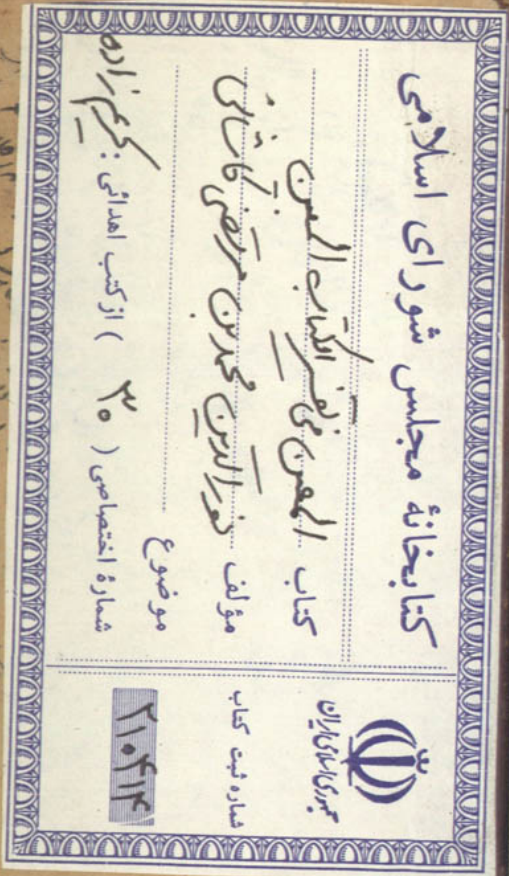 کتابخانهٔ مجلس شورای اسلامی
کتاب المعین فی تفسیر الکتاب المبین
مؤلف نورالدین محمد بن مرتضی کاشانی
موضوع
شمارهٔ اختصاصی ( ۳۰ ) از کتب اهدائی :
جمهوری اسلامی ایران
شماره ثبت کتاب
۲۱۰۴۱۴